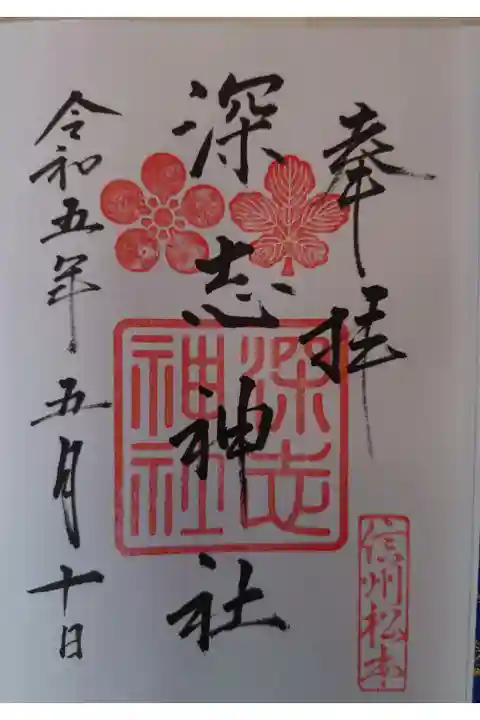 奉拝
深志神社
深志神社
信州松本
令和五年五月十日